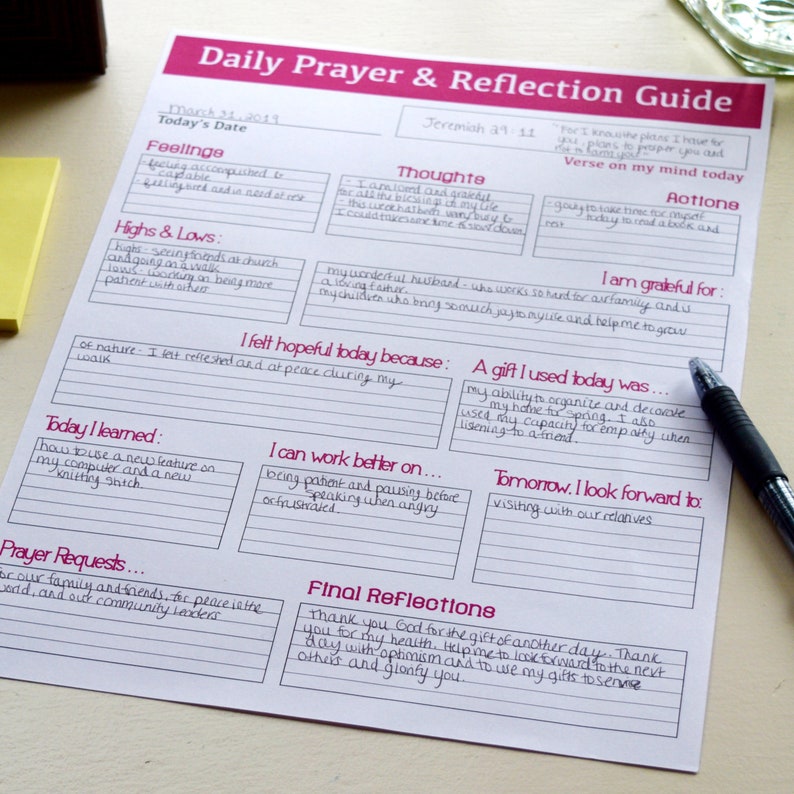 Daily Prayer & Reflection Guide
March 31, 2019
Today's Date
Jeremiah 29:11
"For I know the plans I have for
you, plans to prosper you and
not to harm you"
Verse on my mind today
Feelings
- feeling accomplished &
capable
- feeling tired and in need of rest
Thoughts
- I am loved and grateful
for all the blessings in my life
- this week has been very busy &
I could take some time to slow down
Actions
- going to take time for myself
today to read a book and
rest
Highs & Lows:
highs - seeing friends at church
and going on a walk
lows - working on being more
patient with others
I am grateful for:
my wonderful husband - who works so hard for our family and is
a loving father.
my children who bring so much joy to my life and help me to grow
I felt hopeful today because:
of nature - I felt refleshed and at peace during my
walk
A gift I used today was...
my ability to organize and decorate
my home for spring. I also
used my capacity for empathy when
listening to a friend.
Today I learned:
how to use a new feature on
my computer and a new
knitting stitch.
I can work better on...
being patient and pausing before
speaking when angry
or frustrated.
Tomorrow, I look forward to:
visiting with our relatives
Prayer Requests...
for our family and friends, for peace in the
world, and our community leaders
Final Reflections
Thank you God for the gift of another day. Thank
you for my health. Help me to look forward to the next
day with optimism and to use my gifts to serve
others and glorify you.